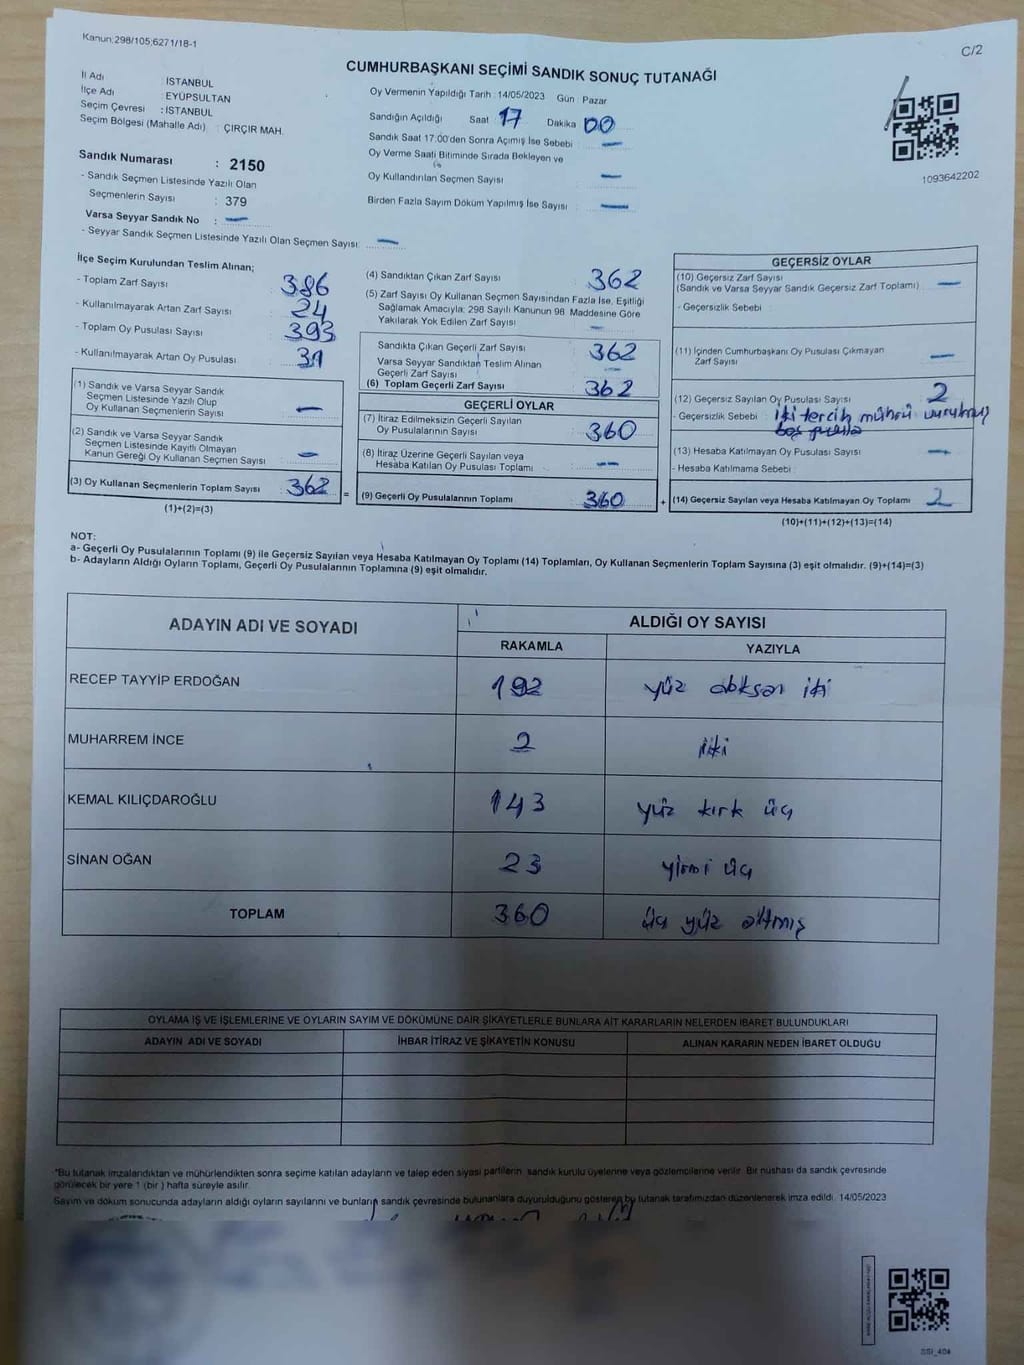 Kanun:298/105;6271/18-1
C/2
CUMHURBAŞKANI SEÇİMİ SANDIK SONUÇ TUTANAĞI
İl Adı : İSTANBUL
İlçe Adı : EYÜPSULTAN
Seçim Çevresi : İSTANBUL
Seçim Bölgesi (Mahalle Adı) : ÇIRÇIR MAH.
Sandık Numarası : 2150
- Sandık Seçmen Listesinde Yazılı Olan
Seçmenlerin Sayısı : 379
Varsa Seyyar Sandık No : —
- Seyyar Sandık Seçmen Listesinde Yazılı Olan Seçmen Sayısı: —
Oy Vermenin Yapıldığı Tarih : 14/05/2023 Gün : Pazar
Sandığın Açıldığı Saat 17 Dakika 00
Sandık Saat 17:00'den Sonra Açımış İse Sebebi —
Oy Verme Saati Bitiminde Sırada Bekleyen ve
Oy Kullandırılan Seçmen Sayısı —
Birden Fazla Sayım Döküm Yapılmış İse Sayısı —
1093642202
İlçe Seçim Kurulundan Teslim Alınan;
- Toplam Zarf Sayısı 386
- Kullanılmayarak Artan Zarf Sayısı 24
- Toplam Oy Pusulası Sayısı 393
- Kullanılmayarak Artan Oy Pusulası 31
(1) Sandık ve Varsa Seyyar Sandık
Seçmen Listesinde Yazılı Olup
Oy Kullanan Seçmenlerin Sayısı —
(2) Sandık ve Varsa Seyyar Sandık
Seçmen Listesinde Kayıtlı Olmayan
Kanun Gereği Oy Kullanan Seçmen Sayısı —
(3) Oy Kullanan Seçmenlerin Toplam Sayısı 362
(1)+(2)=(3)
(4) Sandıktan Çıkan Zarf Sayısı 362
(5) Zarf Sayısı Oy Kullanan Seçmen Sayısından Fazla İse, Eşitliği
Sağlamak Amacıyla; 298 Sayılı Kanunun 98. Maddesine Göre
Yakılarak Yok Edilen Zarf Sayısı —
Sandıkta Çıkan Geçerli Zarf Sayısı 362
Varsa Seyyar Sandıktan Teslim Alınan
Geçerli Zarf Sayısı —
(6) Toplam Geçerli Zarf Sayısı 362
GEÇERLİ OYLAR
(7) İtiraz Edilmeksizin Geçerli Sayılan
Oy Pusulalarının Sayısı 360
(8) İtiraz Üzerine Geçerli Sayılan veya
Hesaba Katılan Oy Pusulası Toplamı —
= (9) Geçerli Oy Pusulalarının Toplamı 360
GEÇERSİZ OYLAR
(10) Geçersiz Zarf Sayısı
(Sandık ve Varsa Seyyar Sandık Geçersiz Zarf Toplamı) —
- Geçersizlik Sebebi
(11) İçinden Cumhurbaşkanı Oy Pusulası Çıkmayan
Zarf Sayısı —
(12) Geçersiz Sayılan Oy Pusulası Sayısı 2
- Geçersizlik Sebebi : iki tercih mührü vurulmuş
boş pusula
(13) Hesaba Katılmayan Oy Pusulası Sayısı —
- Hesaba Katılmama Sebebi :
+ (14) Geçersiz Sayılan veya Hesaba Katılmayan Oy Toplamı 2
(10)+(11)+(12)+(13)=(14)
NOT:
a- Geçerli Oy Pusulalarının Toplamı (9) ile Geçersiz Sayılan veya Hesaba Katılmayan Oy Toplamı (14) Toplamları, Oy Kullanan Seçmenlerin Toplam Sayısına (3) eşit olmalıdır. (9)+(14)=(3)
b- Adayların Aldığı Oyların Toplamı, Geçerli Oy Pusulalarının Toplamına (9) eşit olmalıdır.
ADAYIN ADI VE SOYADI ALDIĞI OY SAYISI
RAKAMLA YAZIYLA
RECEP TAYYİP ERDOĞAN 192 yüz doksan iki
MUHARREM İNCE 2 iki
KEMAL KILIÇDAROĞLU 143 yüz kırk üç
SİNAN OĞAN 23 yirmi üç
TOPLAM 360 üç yüz altmış
OYLAMA İŞ VE İŞLEMLERİNE VE OYLARIN SAYIM VE DÖKÜMÜNE DAİR ŞİKAYETLERLE BUNLARA AİT KARARLARIN NELERDEN İBARET BULUNDUKLARI
ADAYIN ADI VE SOYADI İHBAR İTİRAZ VE ŞİKAYETİN KONUSU ALINAN KARARIN NEDEN İBARET OLDUĞU
*Bu tutanak imzalandıktan ve mühürlendikten sonra seçime katılan adayların ve talep eden siyasi partilerin sandık kurulu üyelerine veya gözlemcilerine verilir. Bir nüshası da sandık çevresinde
görülecek bir yere 1 (bir ) hafta süreyle asılır.
Sayım ve döküm sonucunda adayların aldığı oyların sayılarını ve bunların sandık çevresinde bulunanlara duyurulduğunu gösteren bu tutanak tarafımızdan düzenlenerek imza edildi. 14/05/2023